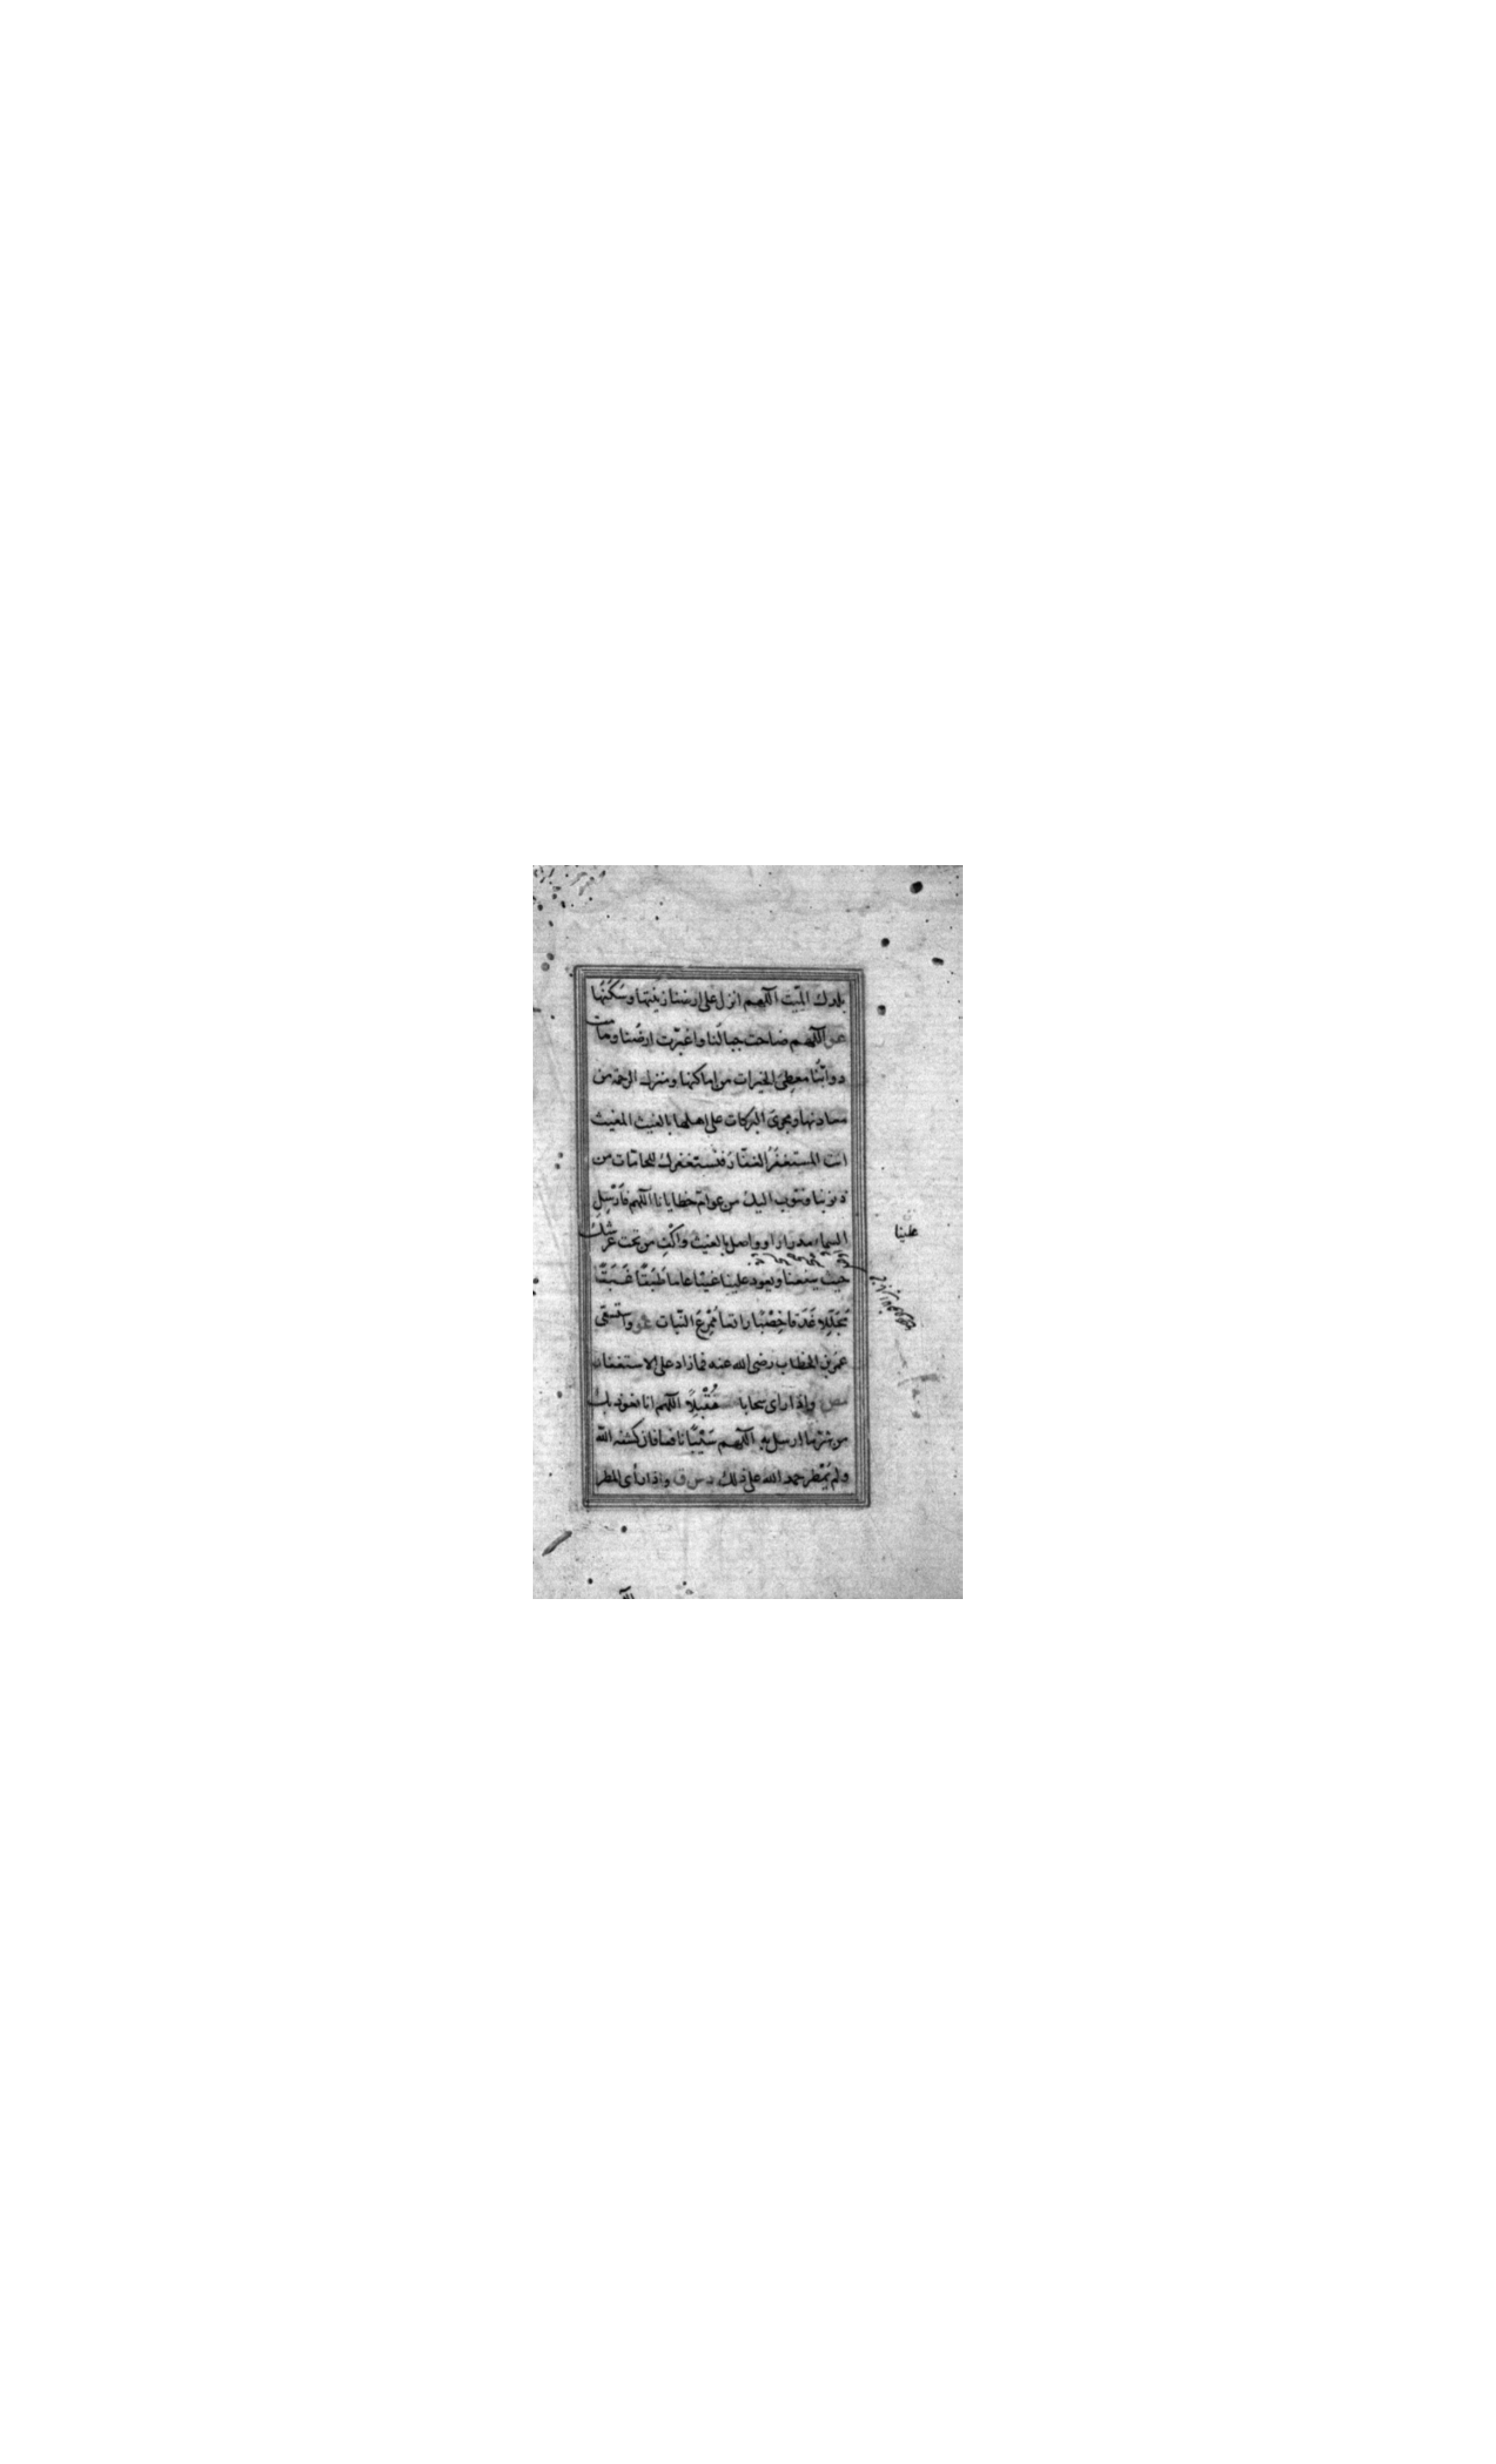 بلدك الميّت اللّهم انزل على ارضنا زينتها وسَكَنَها
عو اللّهم ضاحت جبالُنا واغبرّت ارضُنا وهامت
دوابُّنا معطِىَ الخيرات من اماكنها ومنزل الرحمة من
معادنها ومجرىَ البركات على اهلها بالغيث المغيث
انت المستغفَرُ الغفّار فنستغفرك للحامّات من
ذنوبنا ونتوب اليك من عوامّ خطايانا اللّهم فَارْسِلِ
السماء مدرارا وواصل بالغيث واكْفِ من تحت عرشك
علينا
حيث ينفعنا ويعود علينا غيثا عاما طَبَقًا غَبَقًا
مُجَلِّلا غَدَقا خِصْبًا راتعا مُمْرِعَ النّبات عو واستسقى
عمر بن الخطاب رضى الله عنه فما زاد على الاستغفار
مص واذا راى سحابا مُقْبِلاً اللّهم انا نعوذ بك
من شرّ ما ارسل به اللّهم سَيْبًا نافعا فان كشفه اللّه
ولم يُمْطِر حمد الله على ذلك د س ق واذا رأى المطر